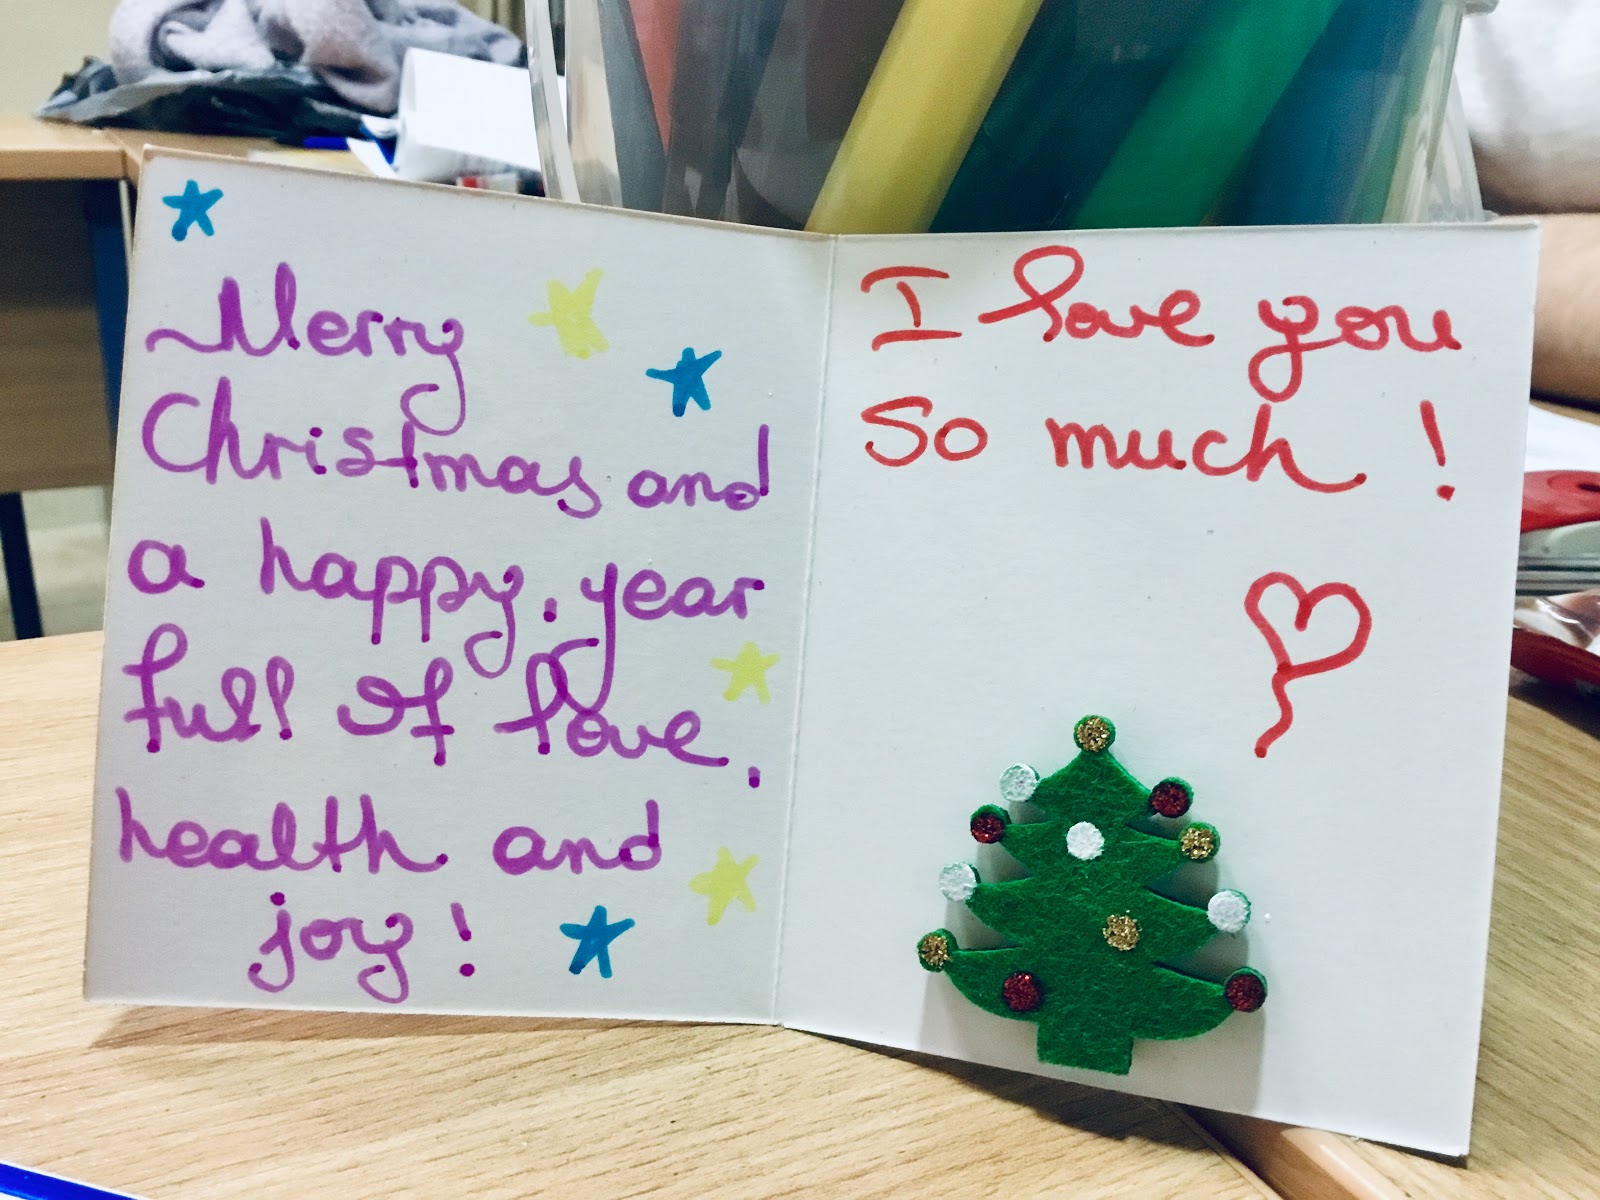 Merry
Christmas and
a happy year
full of love,
health and
joy!
I love you
So much!